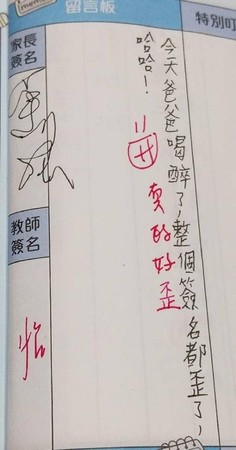 留言板
特別叮
家長
簽名
教師
簽名
今天爸爸喝醉了,整個簽名都歪了,
哈哈!
真的好歪